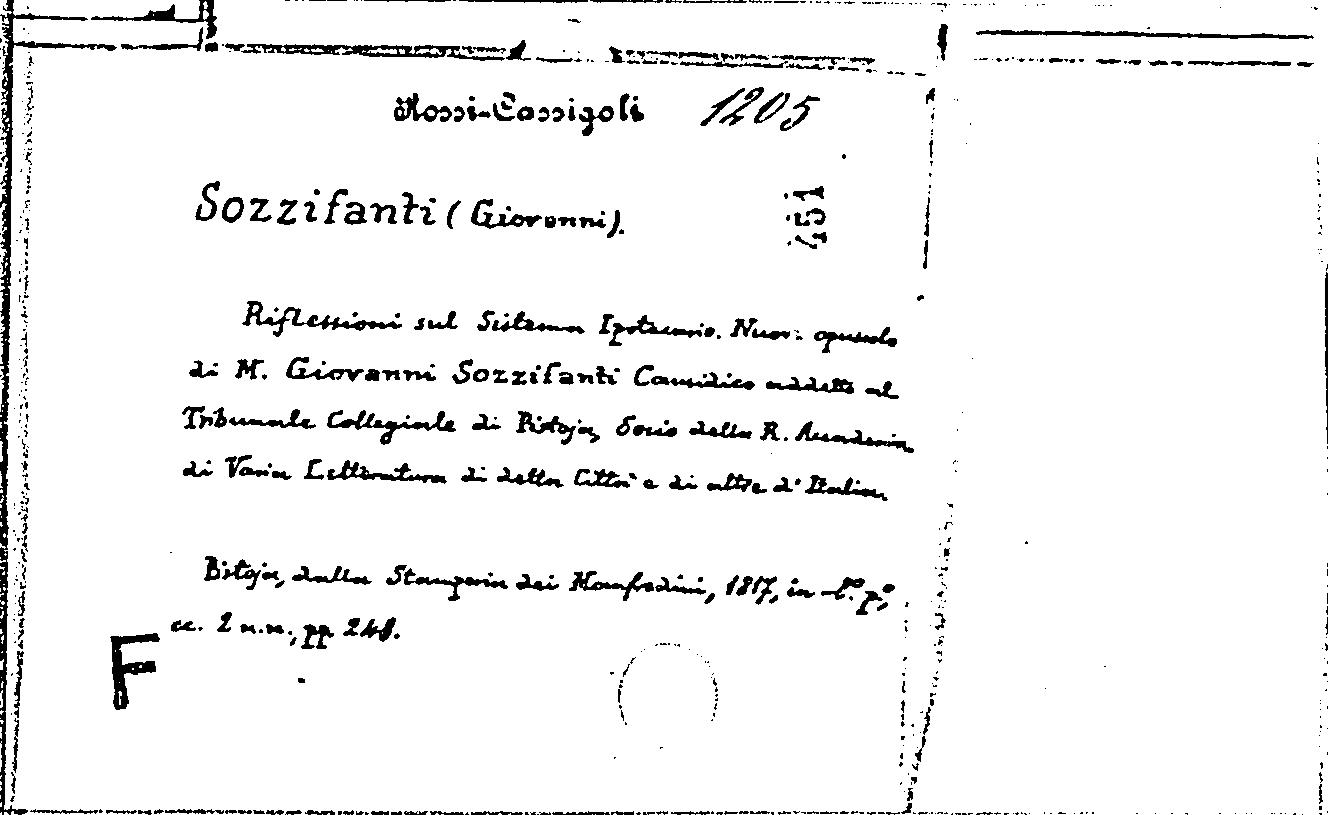 Rossi-Cassigoli 1205
Sozzifanti (Giovanni).
451
Riflessioni sul Sistema Ipotecario. Nuov: opuscolo
di M. Giovanni Sozzifanti Causidico addetto al
Tribunale Collegiale di Pistoja, Socio della R. Accademia
di Varia Letteratura di detta Città e di altre d'Italia.
Pistoja, dalla Stamperia dei Manfredini, 1817, in p.º,
cc. 2 n.n., pp
F